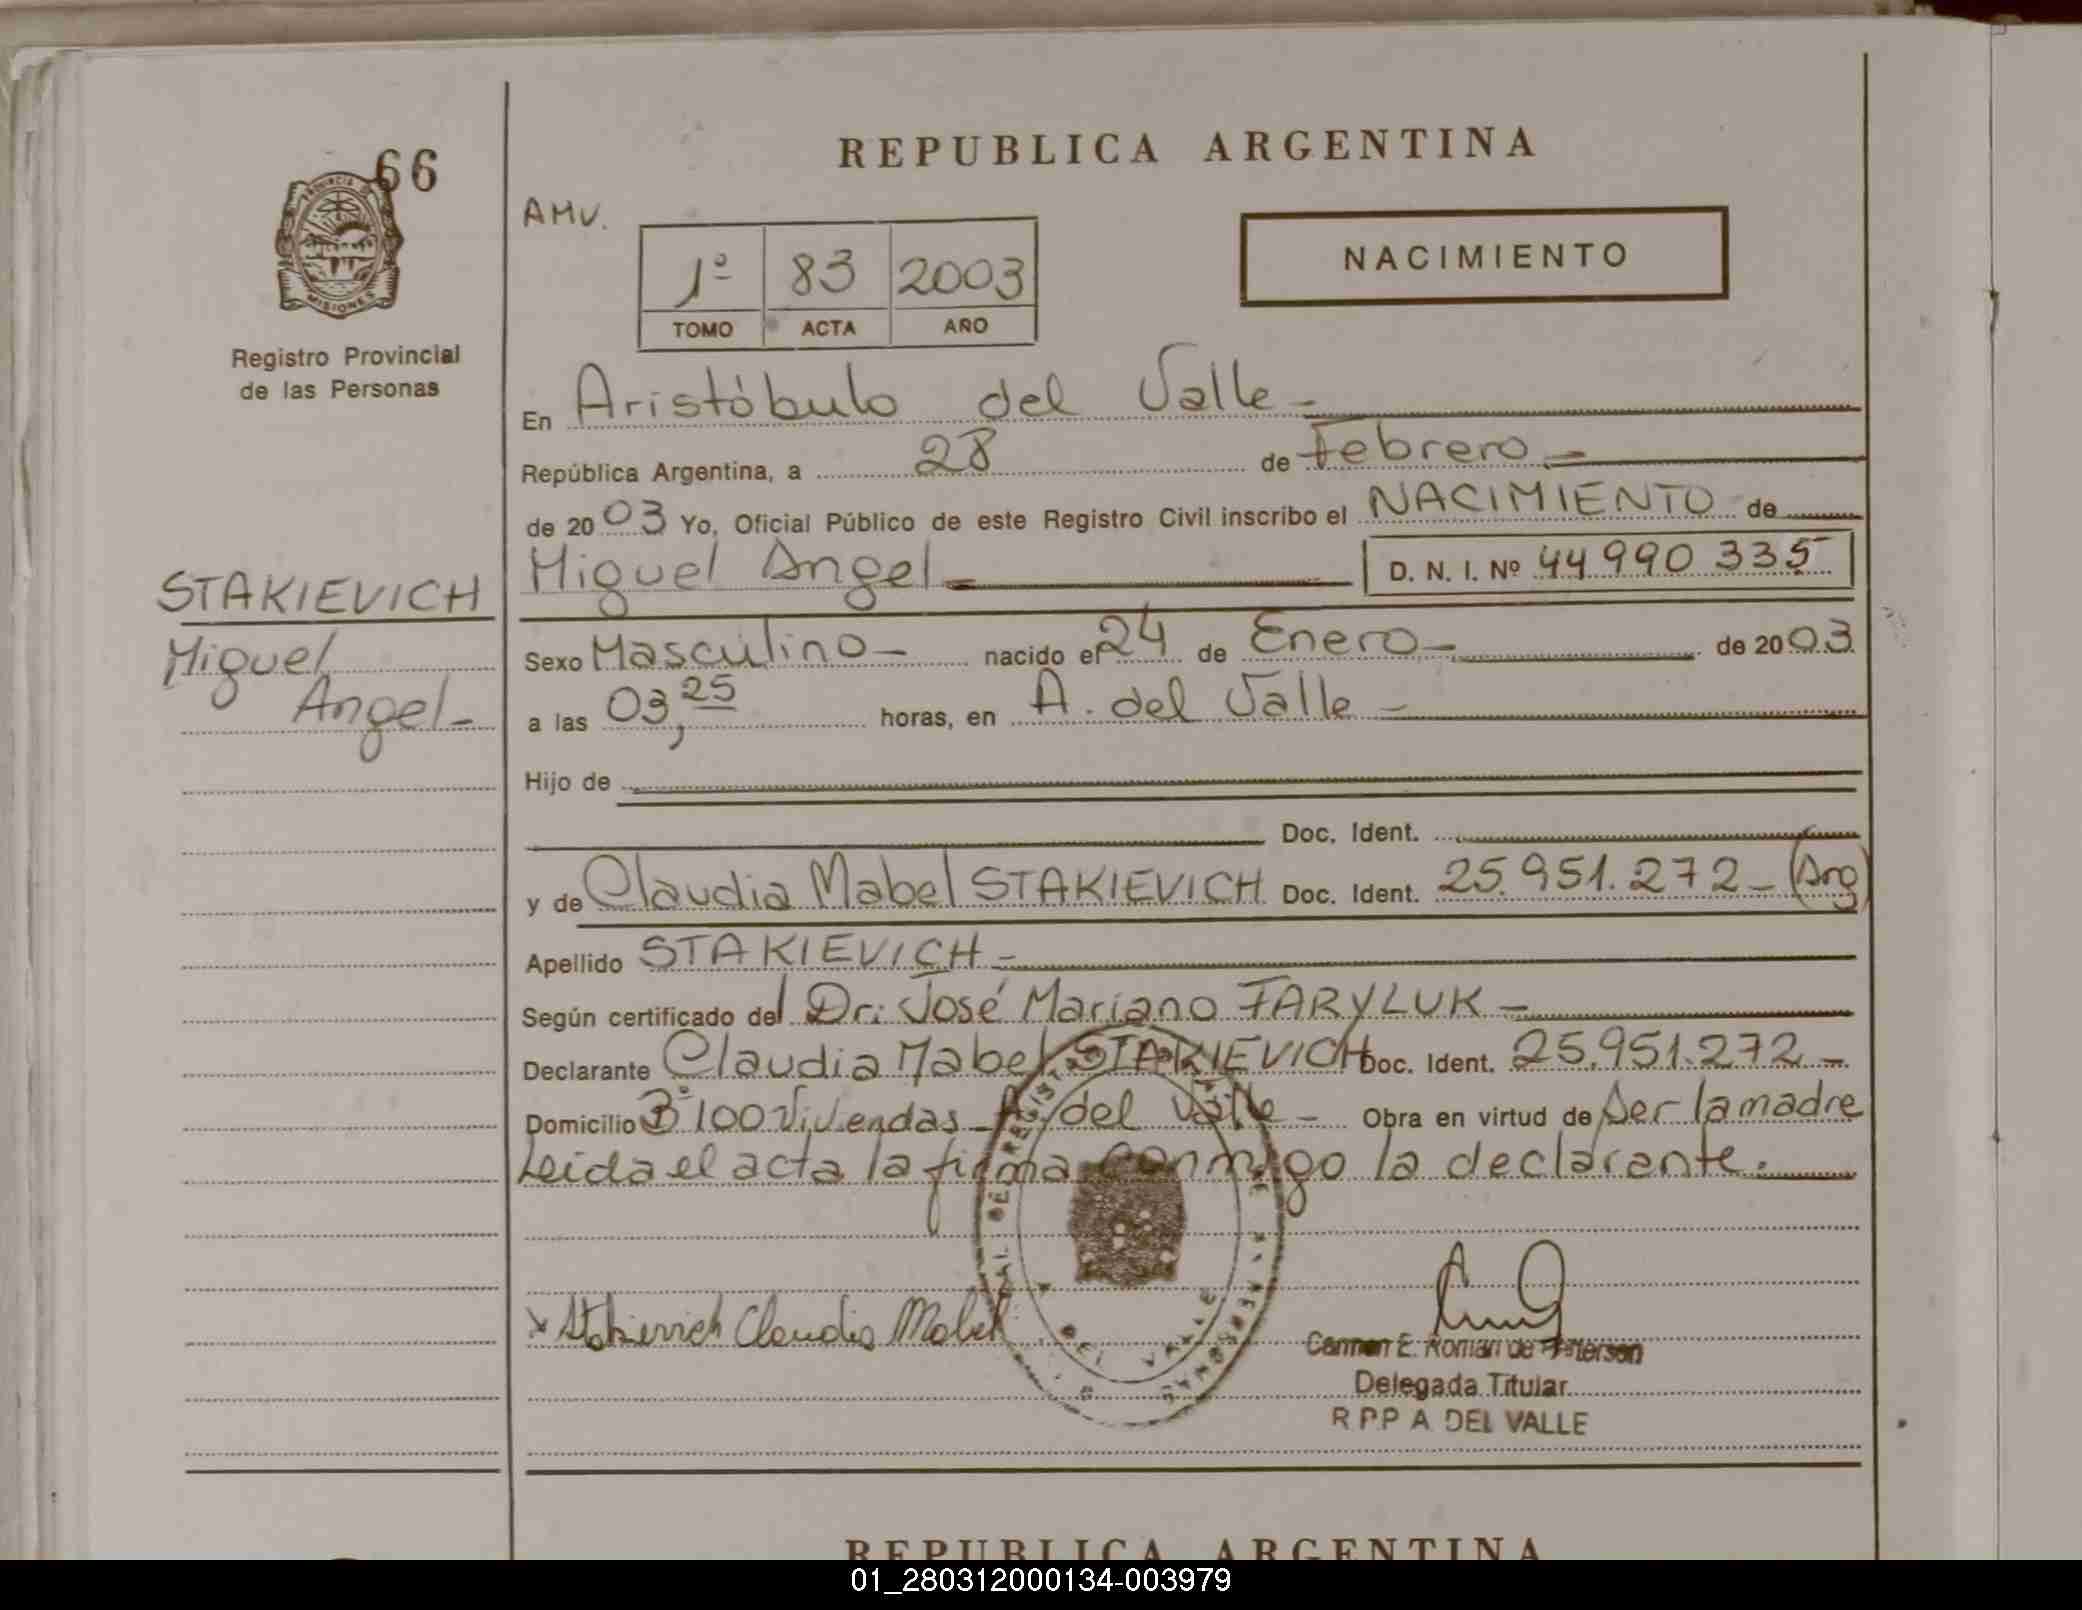 66
PROVINCIA DE
MISIONES
Registro Provincial
de las Personas
STAKIEVICH
Miguel
Angel -
REPUBLICA ARGENTINA
AMV.
NACIMIENTO
1º 83 2003
TOMO ACTA AÑO
En Aristóbulo del Valle -
República Argentina, a 28 de Febrero -
de 2003 Yo, Oficial Público de este Registro Civil inscribo el NACIMIENTO de
Miguel Angel D. N. I. Nº 44990335
Sexo Masculino - nacido el 24 de Enero - de 2003
a las 03,25 horas, en A. del Valle -
Hijo de
Doc. Ident.
y de Claudia Mabel STAKIEVICH Doc. Ident. 25.951.272 - (Arg)
Apellido STAKIEVICH -
Según certificado del Dr. José Mariano TARYLUK -
Declarante Claudia Mabel STAKIEVICH Doc. Ident. 25.951.272 -
Domicilio Bº 100 Viviendas - A. del Valle - Obra en virtud de Ser la madre
Leida el acta la firma conmigo la declarante.
Stakievich Claudia Mabel
Carmen E. Roman de
Delegada Titular
R P P A DEL VALLE
REPUBLICA ARGENTINA
01_280312000134-003979